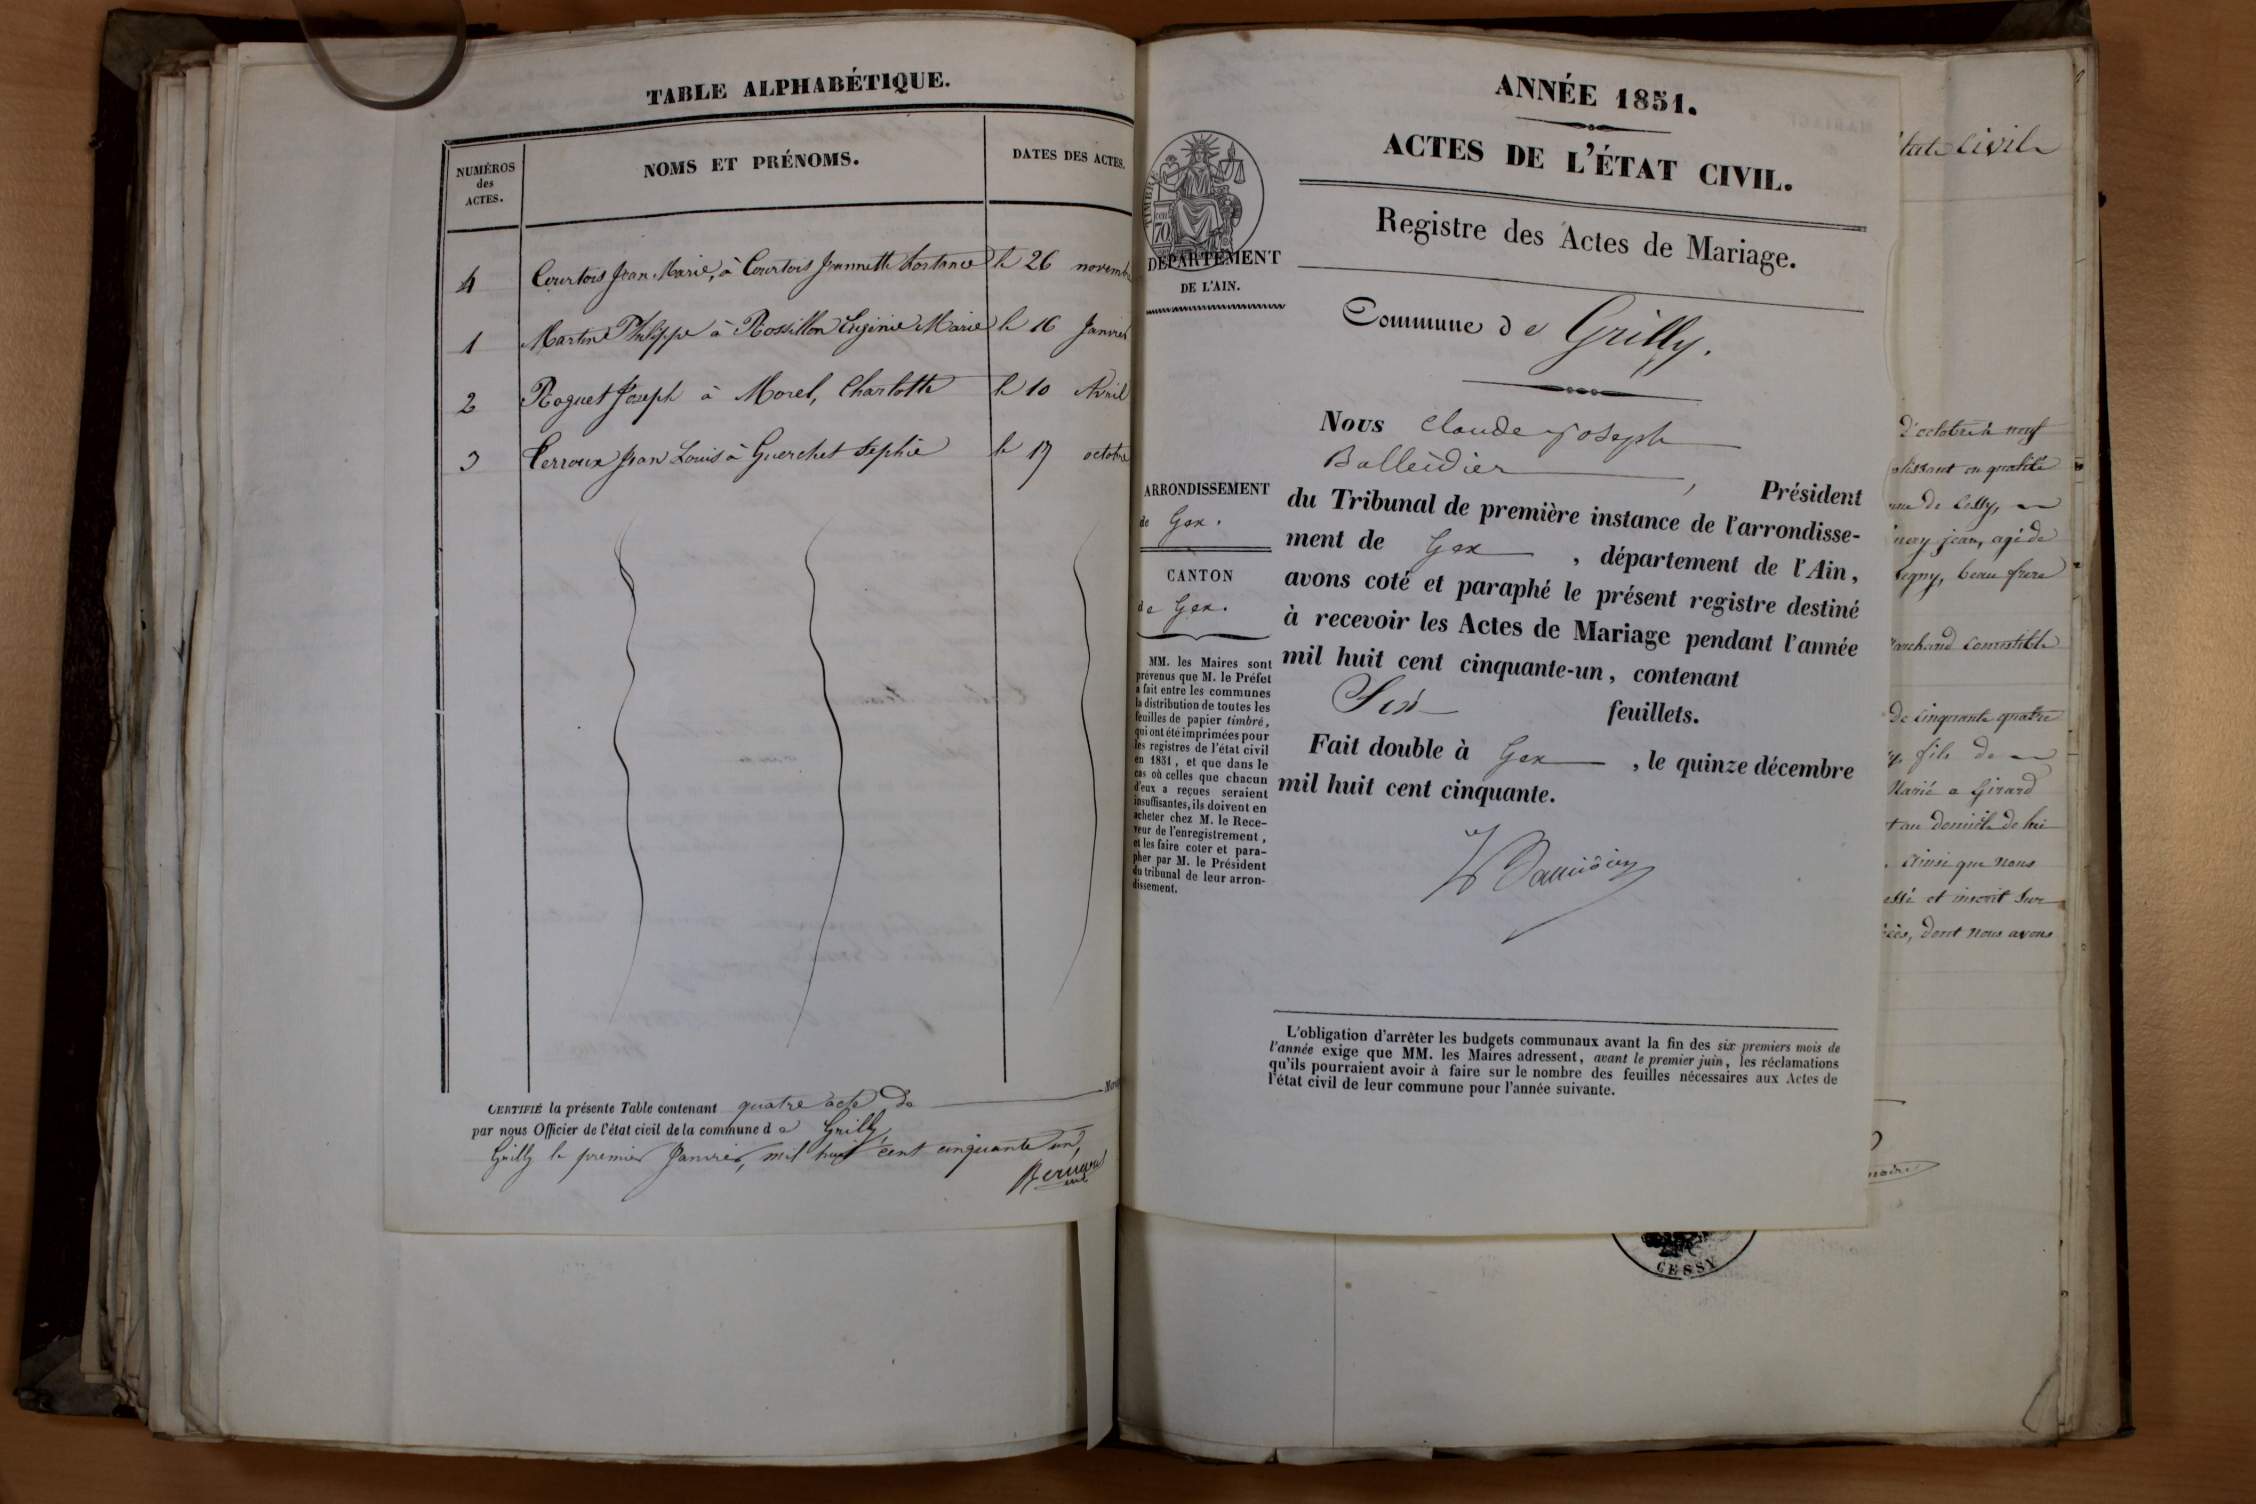 TABLE ALPHABÉTIQUE.
NUMÉROS
des
ACTES.
NOMS ET PRÉNOMS.
DATES DES ACTES.
4 Courtois Jean Marie, à Courtois Jeannette Constance le 26 novembre
1 Martin Philippe à Rossillon Eugénie Marie le 16 Janvier
2 Roguet Joseph à Morel, Charlotte le 10 Avril
3 Perroux Jean Louis à Guerchet Sophie le 17 octobre
CERTIFIÉ la présente Table contenant quatre acte de
par nous Officier de l'état civil de la commune d e Grilly,
Grilly le premier Janvier, mil huit cent cinquante un,
ANNÉE 1851.
ACTES DE L'ÉTAT CIVIL.
Registre des Actes de Mariage.
TIMBRE
70
DÉPARTEMENT
DE L'AIN.
Commune de Grilly.
ARRONDISSEMENT
de Gex.
CANTON
de Gex.
MM. les Maires sont
prévenus que M. le Préfet
a fait entre les communes
la distribution de toutes les
feuilles de papier timbré,
qui ont été imprimées pour
les registres de l'état civil
en 1851, et que dans le
cas où celles que chacun
d'eux a reçues seraient
insuffisantes, ils doivent en
acheter chez M. le Rece-
veur de l'enregistrement,
et les faire coter et para-
pher par M. le Président
du tribunal de leur arron-
dissement.
Nous Claude joseph
Balleidier, Président
du Tribunal de première instance de l'arrondisse-
ment de Gex, département de l'Ain,
avons coté et paraphé le présent registre destiné
à recevoir les Actes de Mariage pendant l'année
mil huit cent cinquante-un, contenant
Six feuillets.
Fait double à Gex, le quinze décembre
mil huit cent cinquante.
L'obligation d'arrêter les budgets communaux avant la fin des six premiers mois de
l'année exige que MM. les Maires adressent, avant le premier juin, les réclamations
qu'ils pourraient avoir à faire sur le nombre des feuilles nécessaires aux Actes de
l'état civil de leur commune pour l'année suivante.
Civil
d'octobre à neuf
en qualité
de Cessy,
jean, agé de
beau frere
Comestible
de cinquante quatre
fils de
Marié a Girard
au domicile de lui
Ainsi que nous
et inscrit sur
dont nous avons
CESSY